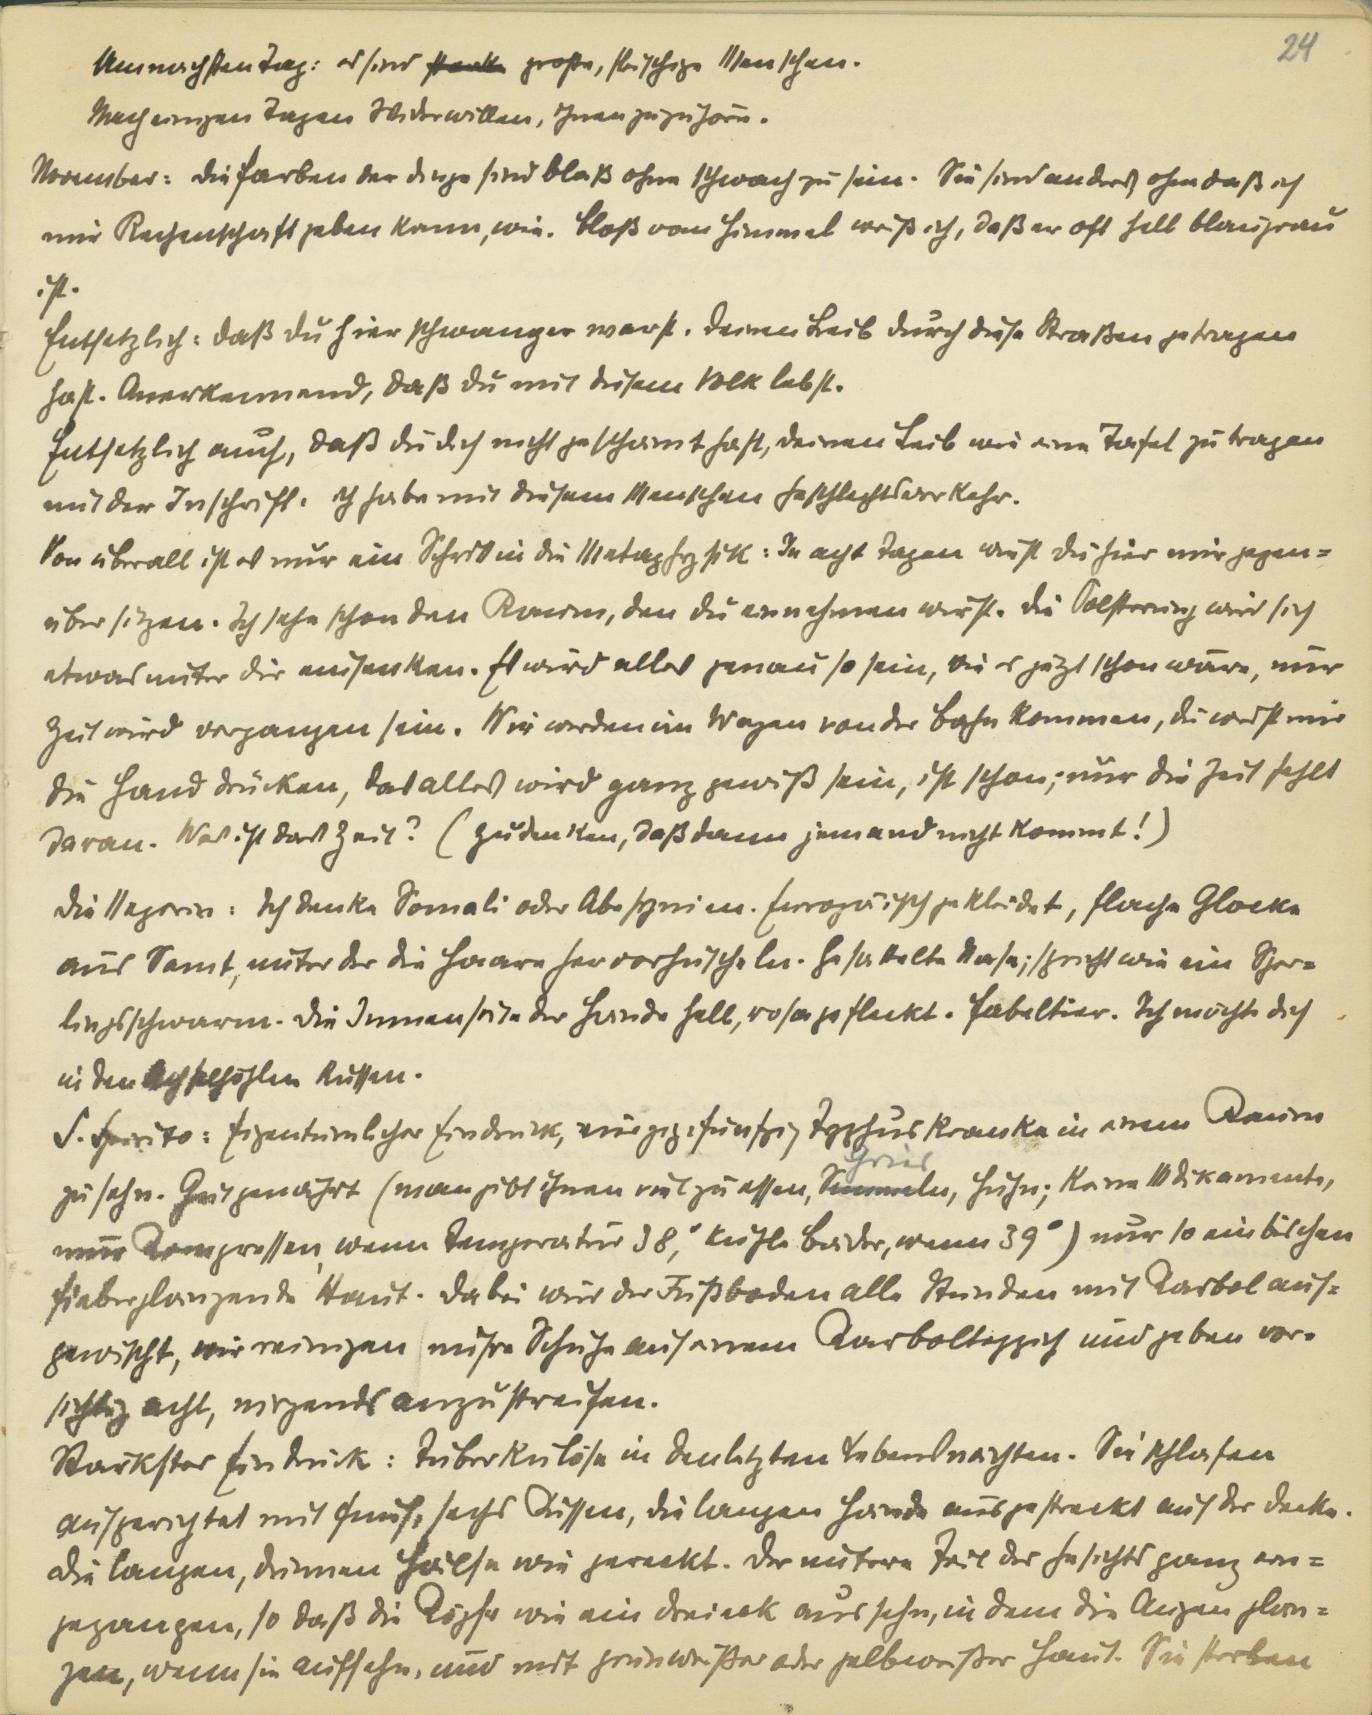 24
Am nächsten Tag: es sind starke große, fleischige Menschen.
Nach einigen Tagen Widerwillen, ihnen zuzuhören.
November: die Farben der dinge sind blaß ohne schwach zu sein. Sie sind anders ohne daß ich
mir Rechenschaft geben kann, wie. bloß vom Himmel weiß ich, daß er oft hell blaugrau
ist.
Entsetzlich: daß du hier schwanger warst. deinen Leib durch diese Straßen getragen
hast. Anerkennend, daß du mit diesem Volk lebst.
Entsetzlich auch, daß du dich nicht geschämt hast, deinen Leib wie eine Tafel zu tragen
mit der Inschrift: ich habe mit diesem Menschen Geschlechtsverkehr.
Von überall ist es nur ein Schritt in die Metaphysik: In acht Tagen wirst du hier mir gegen=
über sitzen. Ich sehe schon den Raum, den du einnehmen wirst. die Polsterung wird sich
etwas unter dir einsenken. Es wird alles genau so sein, wie es jetzt schon wäre, nur
Zeit wird vergangen sein. Wir werden im Wagen von der bahn kommen, du wirst mir
die Hand drücken, das alles wird ganz gewiß sein, ist schon; nur die Zeit fehlt
daran. Was ist das Zeit? (Zu denken, daß dann jemand nicht kommt!)
die Negerin: Ich denke Somali oder Abessynien. Europäisch gekleidet, flache Glocke
aus Samt, unter der die Haare hervorhuscheln. Gesattelte Nase; spricht wie ein Sper=
lingsschwarm. die Innenseite der Hände hell, rosa gefleckt. Fabeltier. Ich möchte dich
in den Achselhöhlen küssen.
S. Spirito: Eigentümlicher Eindruck, einige fünfzig Typhuskranke in einem Raum
Gries
zu sehn. Gut genährt (man gibt ihnen viel zu essen, Semmeln, Huhn; keine Medikamente,
nur Kompressen, wenn Temperatur 38,° kühle bäder, wenn 39°) nur so ein bischen
fieberglänzende Haut. dabei wird der Fußboden alle Stunden mit Karbol auf=
gewischt, wir reinigen unsre Schuhe auf einem Karbolteppich und geben vor=
sichtig acht, nirgends anzustreifen.
Stärkster Eindruck: Tuberkulöse in den letzten Lebensnächten. Sie schlafen
aufgerichtet mit fünf, sechs Kissen, die langen Hände ausgestreckt auf der decke.
die langen, dünnen Hälse wie gereckt. der untere Teil des Gesichts ganz ein=
gegangen, so daß die Köpfe wie ein dreieck aussehn, in dem die Augen glän=
zen, wenn sie aufsehn, und mit grünweißer oder gelbweißer Haut. Sie sterben